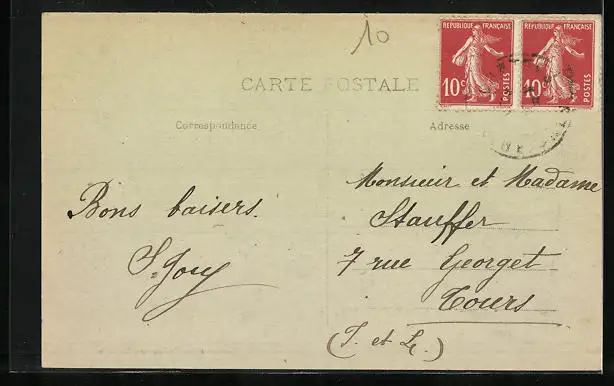 10
REPUBLIQUE FRANÇAISE
10c POSTES
REPUBLIQUE FRANÇAISE
10c POSTES
CARTE POSTALE
Correspondance
Adresse
Bons baisers.
Monsieur et Madame
Stauffer
7 rue Georget
Tours
(I. et L.)